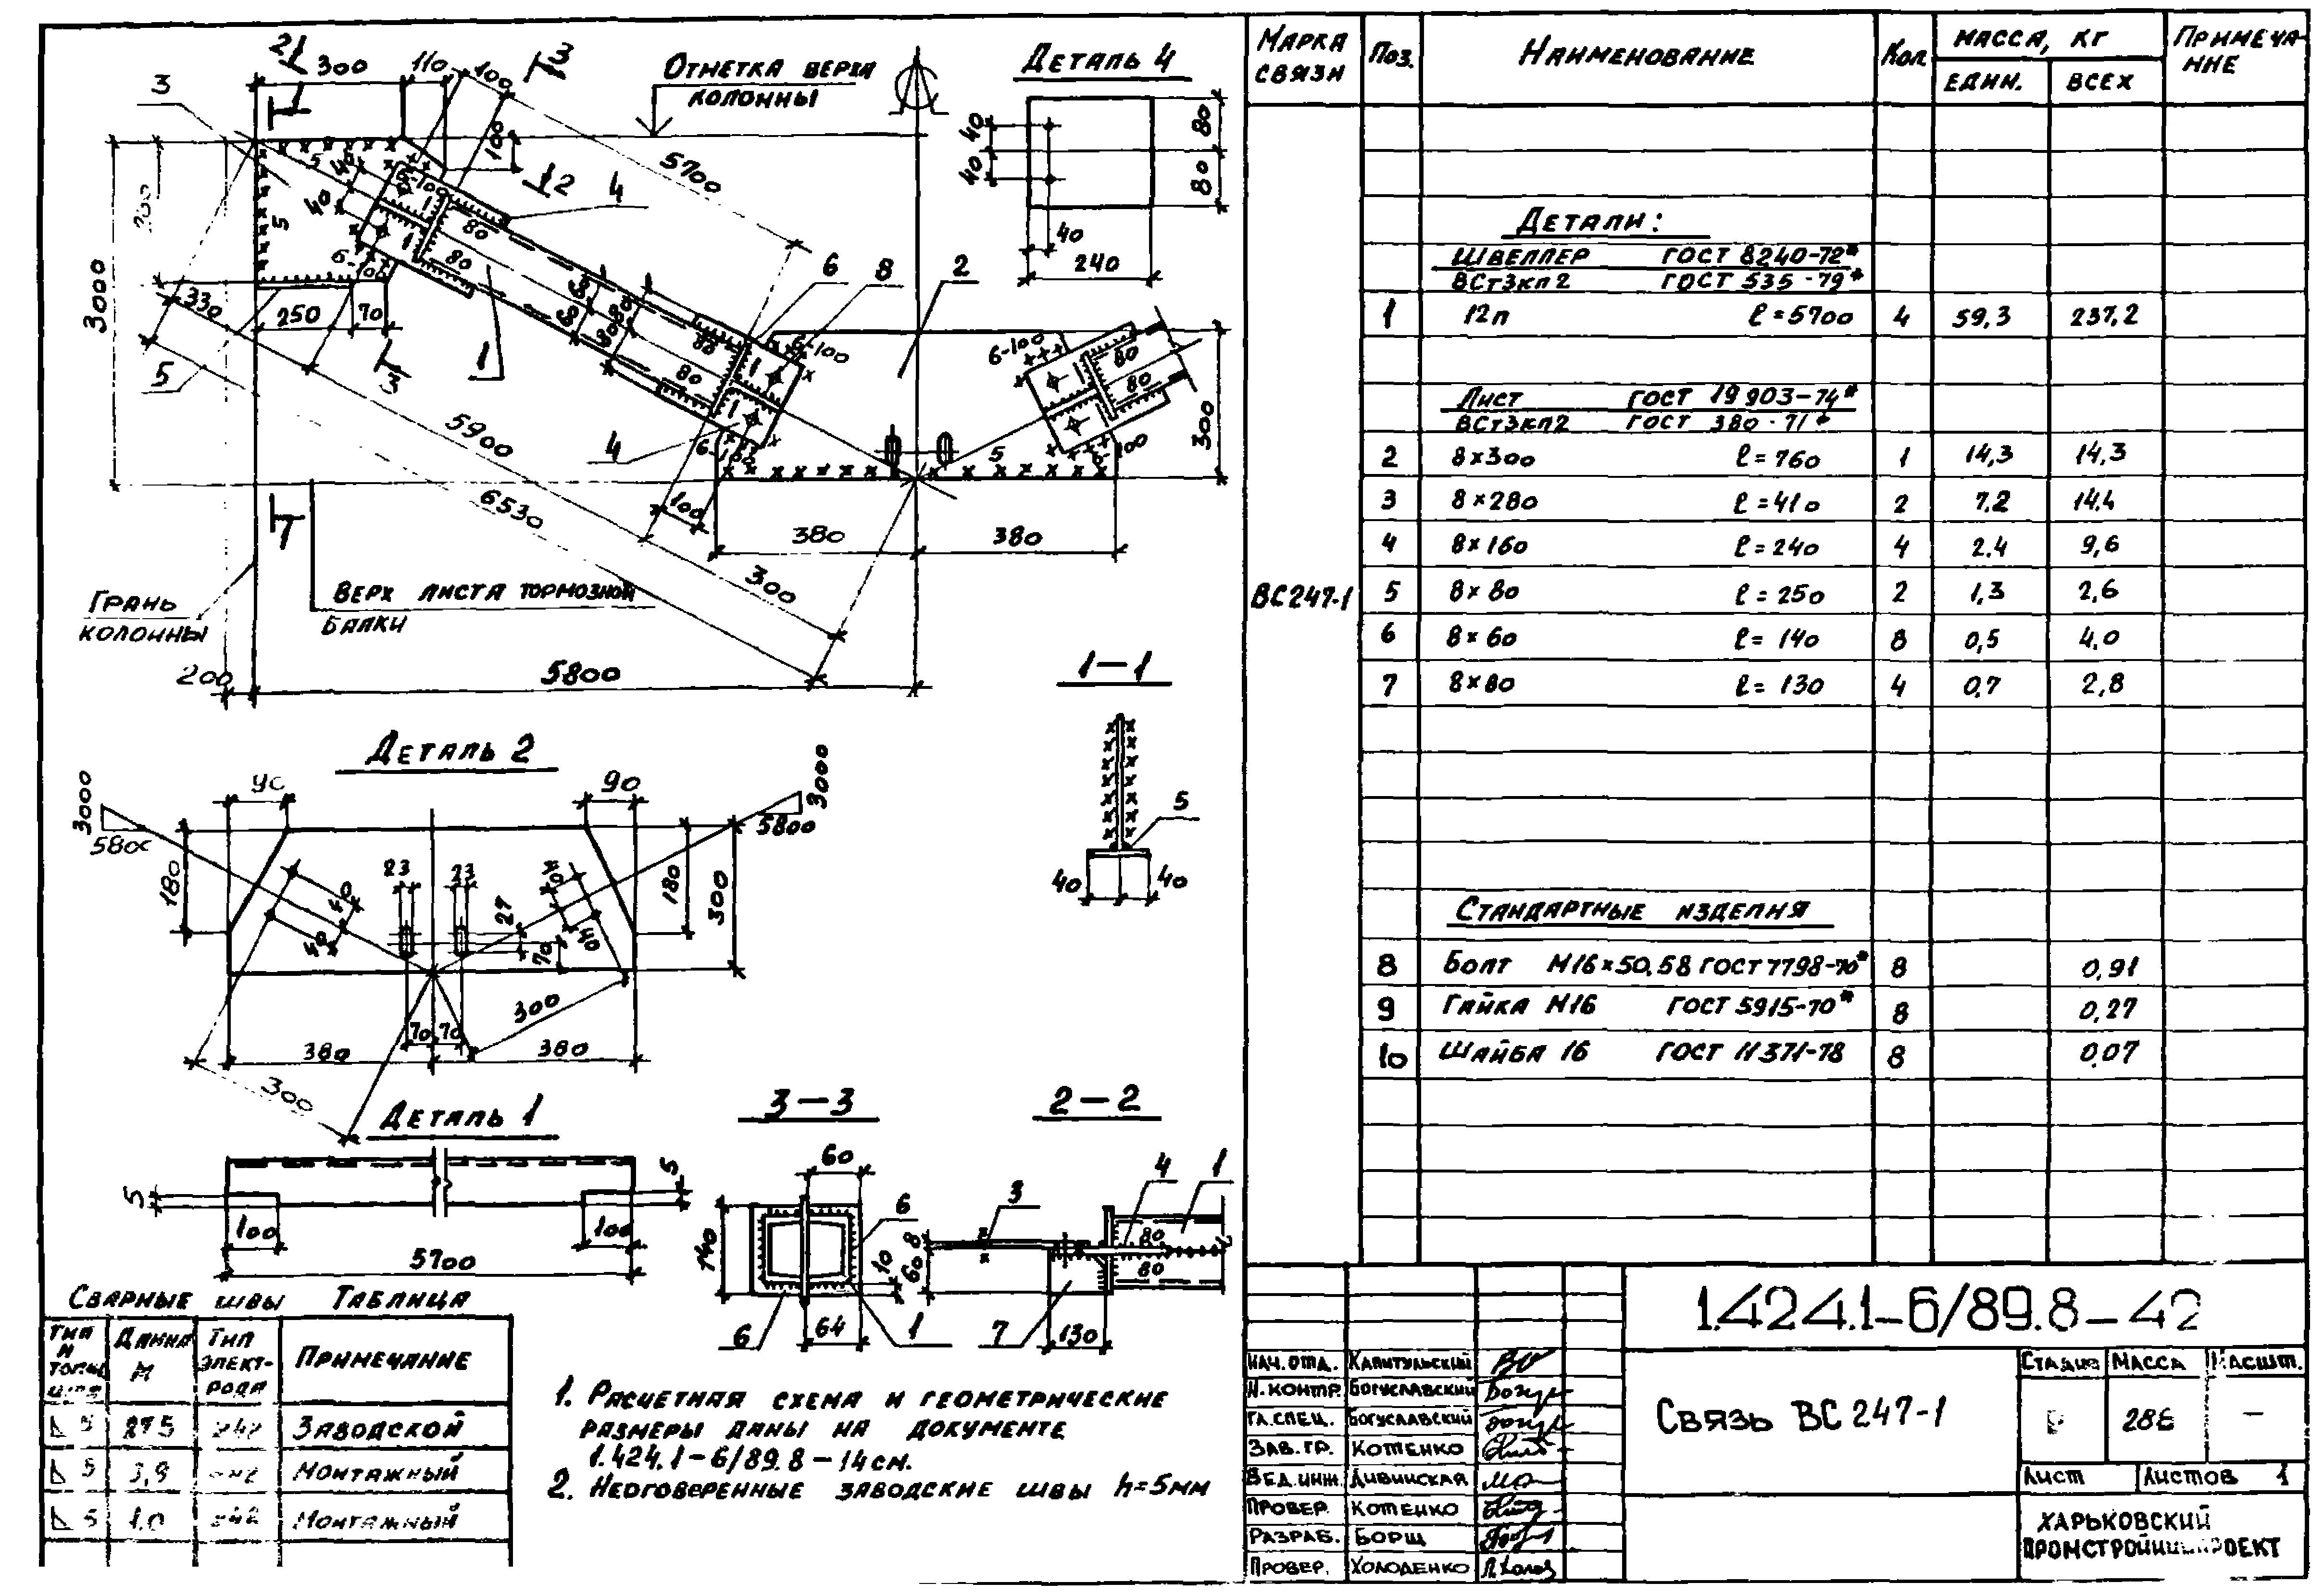 2 1
300
110
100
3
3
Отметка верха
колонны
Деталь 4
40
40
80
80
40
240
100
5700
2
4
5
40
40
6-100
80
80
5
3000
330
250
70
3
5
1
6
8
2
80
80
80
80
6-100
6-100
80
80
5
300
4
100
380
380
5900
6530
300
Грань
колонны
Верх листа тормозной
балки
200
5800
Деталь 2
90
3000
5800
180
23
23
40
40
40
27
70
90
3000
5800
180
300
70
70
380
380
300
300
1-1
5
40
40
Деталь 1
5
100
5700
100
5
3-3
60
140
6
10
6
64
1
2-2
3
4
1
8
60
80
80
7
130
Сварные швы Таблица
Тип и толщ. шва
Длина м
Тип электрода
Примечание
5 Заводской
5 3,9 Монтажный
5 1,0 Э42 Монтажный
1. Расчетная схема и геометрические
размеры даны на документе
1.424.1-6/89.8-14см.
2. Неоговеренные заводские швы h=5мм
Марка связи Поз. Наименование Кол. Масса, кг Примечание
един. всех
Детали:
Швеллер ГОСТ 8240-72*
ВСт3кп2 ГОСТ 535-79*
1 12п ℓ=5700 4 59,3 237,2
Лист ГОСТ 19903-74*
ВСт3кп2 ГОСТ 380-71*
2 8×300 ℓ=760 1 14,3 14,3
3 8×280 ℓ=410 2 7,2 14,4
4 8×160 ℓ=240 4 2,4 9,6
ВС247-1 5 8×80 ℓ=250 2 1,3 2,6
6 8×60 ℓ=140 8 0,5 4,0
7 8×80 ℓ=130 4 0,7 2,8
Стандартные изделия
8 Болт М16×50.58 ГОСТ 7798-70* 8 0,91
9 Гайка М16 ГОСТ 5915-70* 8 0,27
10 Шайба 16 ГОСТ 11371-78 8 0,07
1.424.1-6/89.8-42
Нач. отд. Капитульский
Н. контр. Богуславский
Гл. спец. Богуславский
Зав. гр. Котенко
Вед. инж. Дивинская
Провер. Котенко
Разраб. Борщ
Провер. Холоденко
Связь ВС 247-1
Стадия Масса Масшт.
Р —
Лист Листов 1
Харьковский